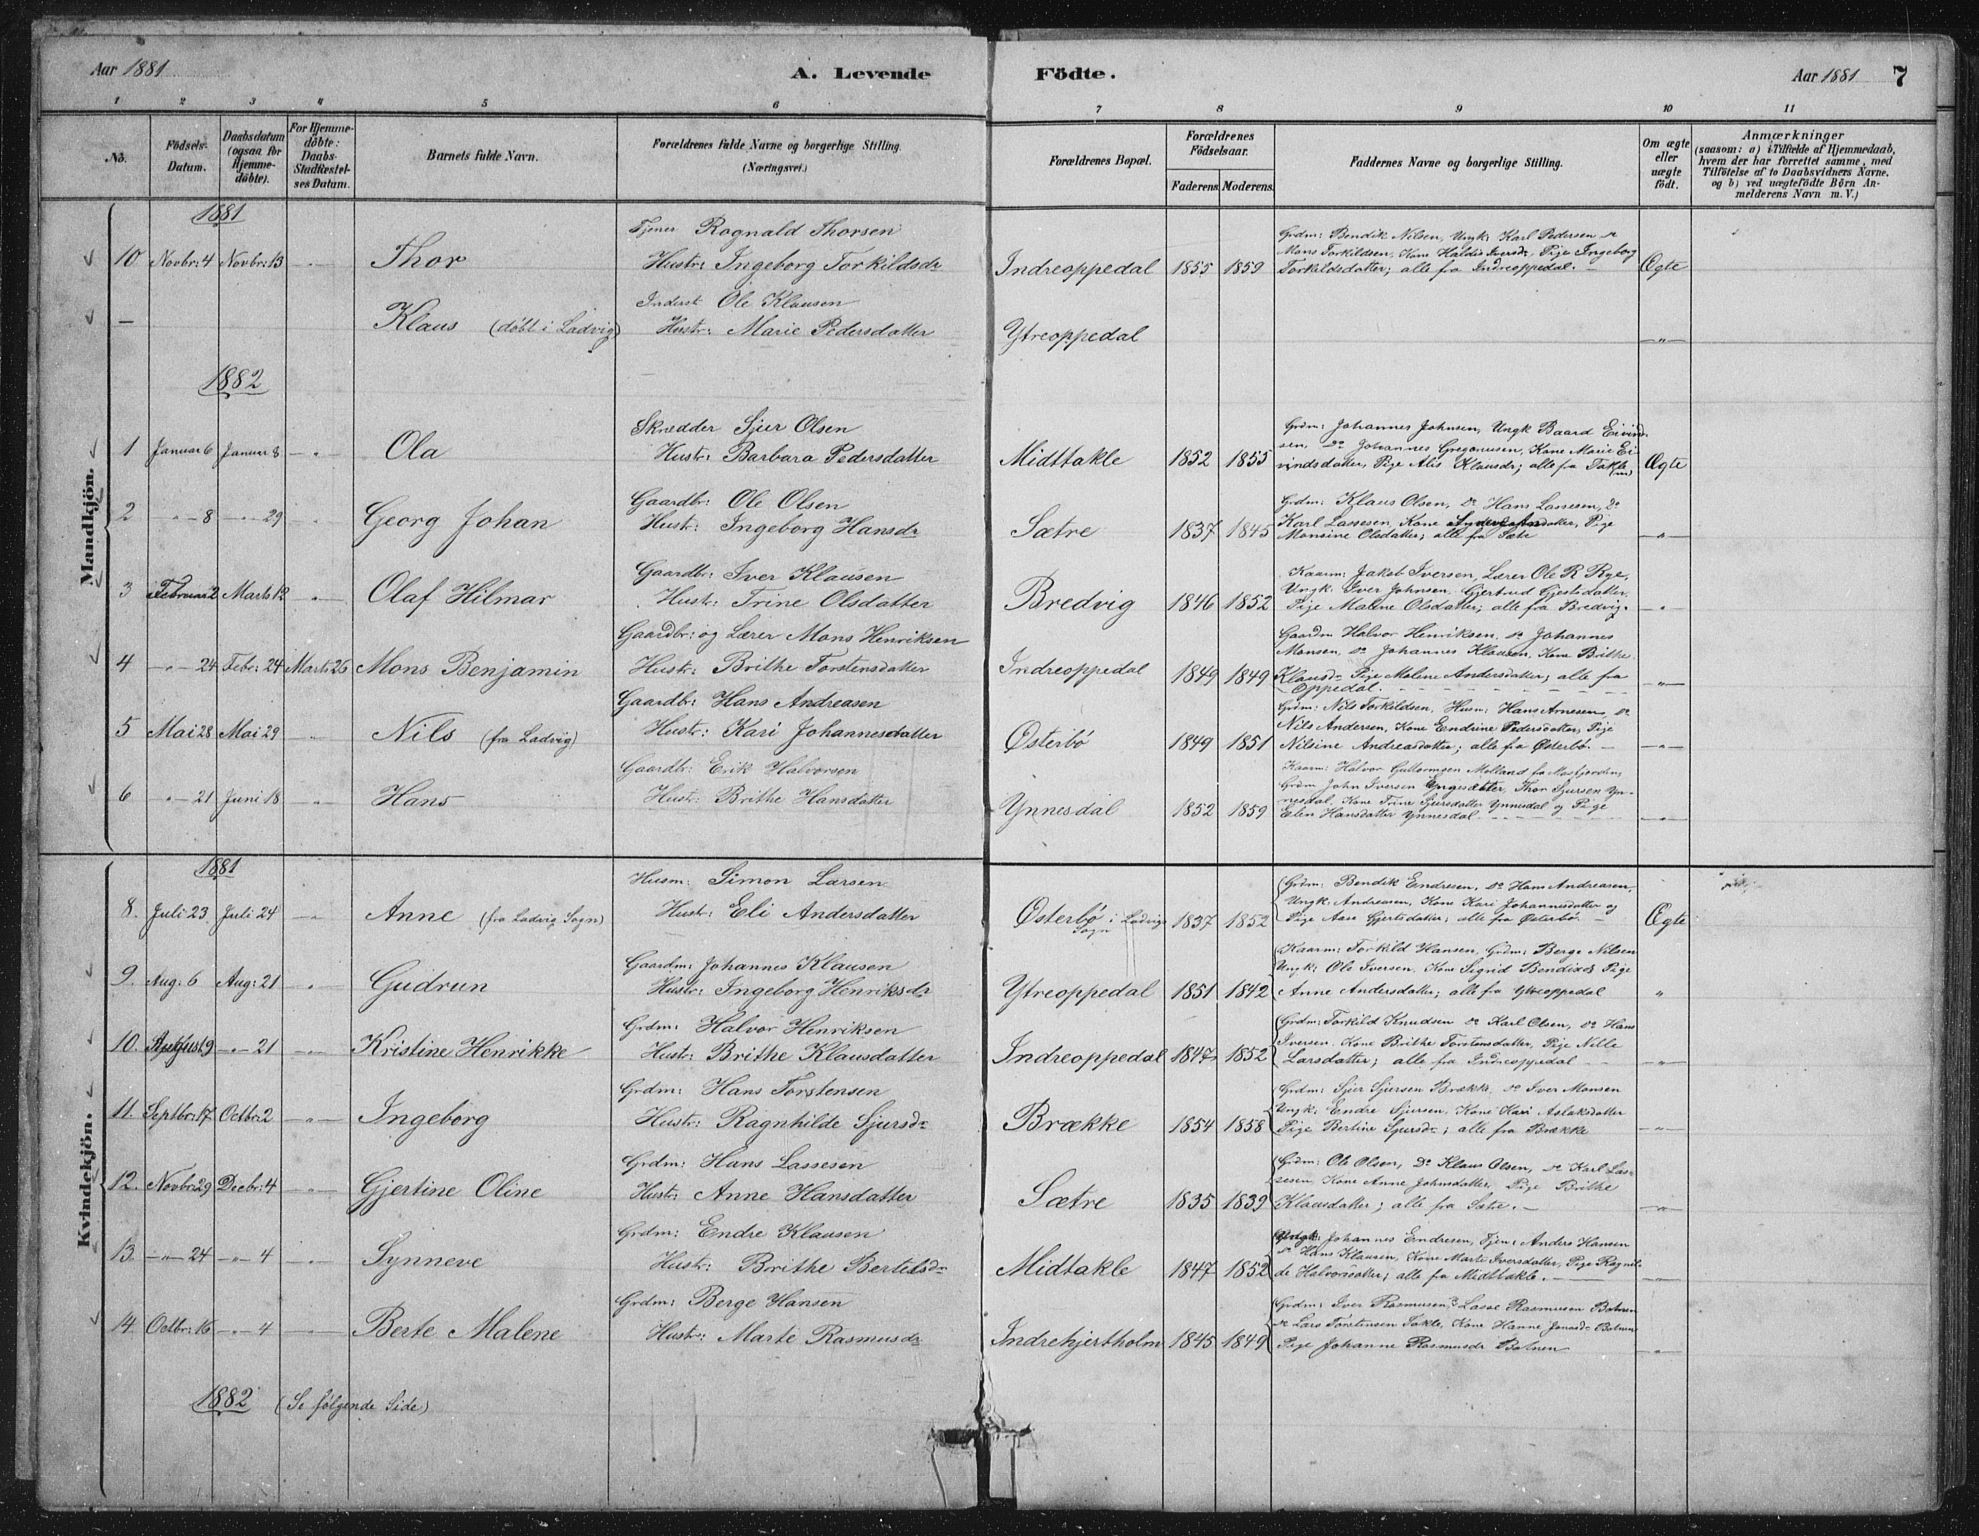 Aar 1881 A. Levende Födte. Aar 1881 7
1 2 3 4 5 6 7 8 9 10 11
No. Födsels-Datum. Daabsdatum (ogsaa for Hjemme-döbte). For Hjemme-döbte: Daabs-Stadfæstel-ses Datum. Barnets fulde Navn. Forældrenes fulde Navne og borgerlige Stilling. (Næringsvei.) Forældrenes Bopæl. Forældrenes Födselsaar. Faderens. Moderens. Faddernes Navne og borgerlige Stilling. Om ægte eller uægte födt. Anmærkninger (saasom: a) i Tilfælde af Hjemmedaab, hvem der har forrettet samme, med Tilföielse af to Daabsvidners Navne, og b) ved uægtefödte Börn An-melderens Navn m. V.)
Mandkjön.
1881
Tjener Rognald Thorsen
Grdm: Bendik Nilsen, Ungk: Karl Pedersen do
10 Novbr: 4 Novbr: 13 Thor Hustr: Ingeborg Torkildsdr Indreoppedal 1855 1859 Mons Torkildsen, Kone Haldis Iversdr, Pige Ingeborg Ægte
Torkildsdatter; alle fra Indreoppedal.
Inderst Ole Klausen
— Klaus (døbt i Ladvig) Hustr: Marie Pedersdatter Ytreoppedal "
1882
Skrædder Sjur Olsen
Grdm: Johannes Johnsen, Ungk Baard Eivind-
1 Januar 6 Januar 8 Ola Hustr: Barbara Pedersdatter Midttakle 1852 1855 sen, do Johannes Gregoriusen, Kone Marie Ei-
vindsdatter, Pige Alis Klausdr; alle fra Takle Ægte
Gaardbr: Ole Olsen
Grdm: Klaus Olsen, do Hans Lassesen, do
2 " 8 " 29 Georg Johan Hustr: Ingeborg Hansdr Sætre 1837 1845 Karl Lassesen, Kone datter, Pige
Monsine Olsdatter; alle fra Sætre "
Gaardbr: Iver Klausen
Kaarm: Jakob Iversen, Lærer Ole R Rye,
3 Februar 2 Marts 12 Olaf Hilmar Hustr: Trine Olsdatter Bredvig 1846 1852 Ungk: Iver Johnsen, Gjertrud Gjertsdatter,
Pige Malene Olsdatter; alle fra Bredvig. "
Gaardbr: og Lærer Mons Henriksen
Gaardm Halvor Henriksen, do Johannes
4 " 24 Febr: 24 Marts 26 Mons Benjamin Hustr: Brithe Torstensdatter Indreoppedal 1849 1849 Monsen, do Johannes Klausen, Kone Brithe
Klausdr Pige Malene Andersdatter; alle fra "
Oppedal.
Gaardbr: Hans Andreasen
Grdm: Nils Torkildsen, Husm: Hans Arnesen do
5 Mai 28 Mai 29 Nils (fra Ladvig) Hustr: Kari Johannesdatter Østerbö 1849 1851 Nils Andersen, Kone Endrine Pedersdatter, Pige
Nilsine Andreasdatter; alle fra Østerbö. "
Gaardbr: Erik Halvorsen
Kaarm: Halvor Guttormsen Molland fra Masfjorden,
6 " 21 Juni 18 Hans Hustr: Brithe Hansdatter Ynnesdal 1852 1859 Grdm John Iversen Engesæter, Thor Sjursen Yn-
nesdal, Kone Trine Sjursdatter Ynnesdal og Pige
Elen Hansdatter Ynnesdal "
Kvindekjön.
1881
Husm: Simon Larsen
Grdm: Bendik Endresen, do Hans Andreasen,
8. Juli 23 Juli 24 Anne (fra Ladvig Sogn) Hustr: Eli Andersdatter Østerbö i Ladvigs Sogn 1837 1852 Ungk. Andreasen, Kone Kari Johannesdatter og
Pige Aase Gjertsdatter; alle fra Østerbö. Ægte
Gaardm: Johannes Klausen
Kaarm: Torkild Hansen, Grdm: Berge Nilsen
9. Aug. 6 Aug: 21 Gudrun Hustr: Ingeborg Henriksdr Ytreoppedal 1851 1842 Ungk: Ole Iversen, Kone Sigrid Bendixdr Pige
Anne Andersdatter; alle fra Ytreoppedal "
Grdm: Halvor Henriksen
Grdm: Torkild Knudsen do Karl Olsen, do Hans
10. August 9 " 21 Kristine Henrikke Hustr: Brithe Klausdatter Indreoppedal 1847 1852 Iversen. Kone Brithe Torstensdatter, Pige Nille
Larsdatter; alle fra Indreoppedal "
Grdm: Hans Torstensen
Grdm: Sjur Sjursen Brække, do Iver Monsen
11. Septbr: 17 Octbr: 2 Ingeborg Hustr: Ragnhilde Sjursdr Brække 1854 1858 Ungk: Endre Sjursen, Kone Kari Aslaksdatter
Pige Bertine Sjursdr; alle fra Brække "
Grdm: Hans Lassesen
Grdm: Ole Olsen, Do Klaus Olsen, do Karl Las-
12. Novbr: 29 Decbr: 4 Gjertine Oline Hustr: Anne Hansdatter Sætre 1835 1839 sesen, Kone Anne Johnsdatter, Pige Brithe
Klausdatter; alle fra Sætre. "
Grdm: Endre Klausen
Ungk: Johannes Endresen, Tjen: Anders Hansen
13. " 24 " 4 Synneve Hustr: Brithe Bertelsdr Midttakle 1847 1852 do Hans Klausen, Kone Marte Iversdatter, Pige Ragnil-
de Halvorsdatter; alle fra Midttakle. "
Grdm: Berge Hansen
Grdm: Iver Rasmusen, Lasse Rasmusen Botnen
14. Octbr: 16 " 4 Berte Malene Hustr: Marte Rasmusdr Indrehjertholm 1845 1849 do Lars Torstensen Takle, Kone Hanne Jonasdr Botnen
Pige Johanne Rasmusdr Botnen "
1882 (Se følgende Side)